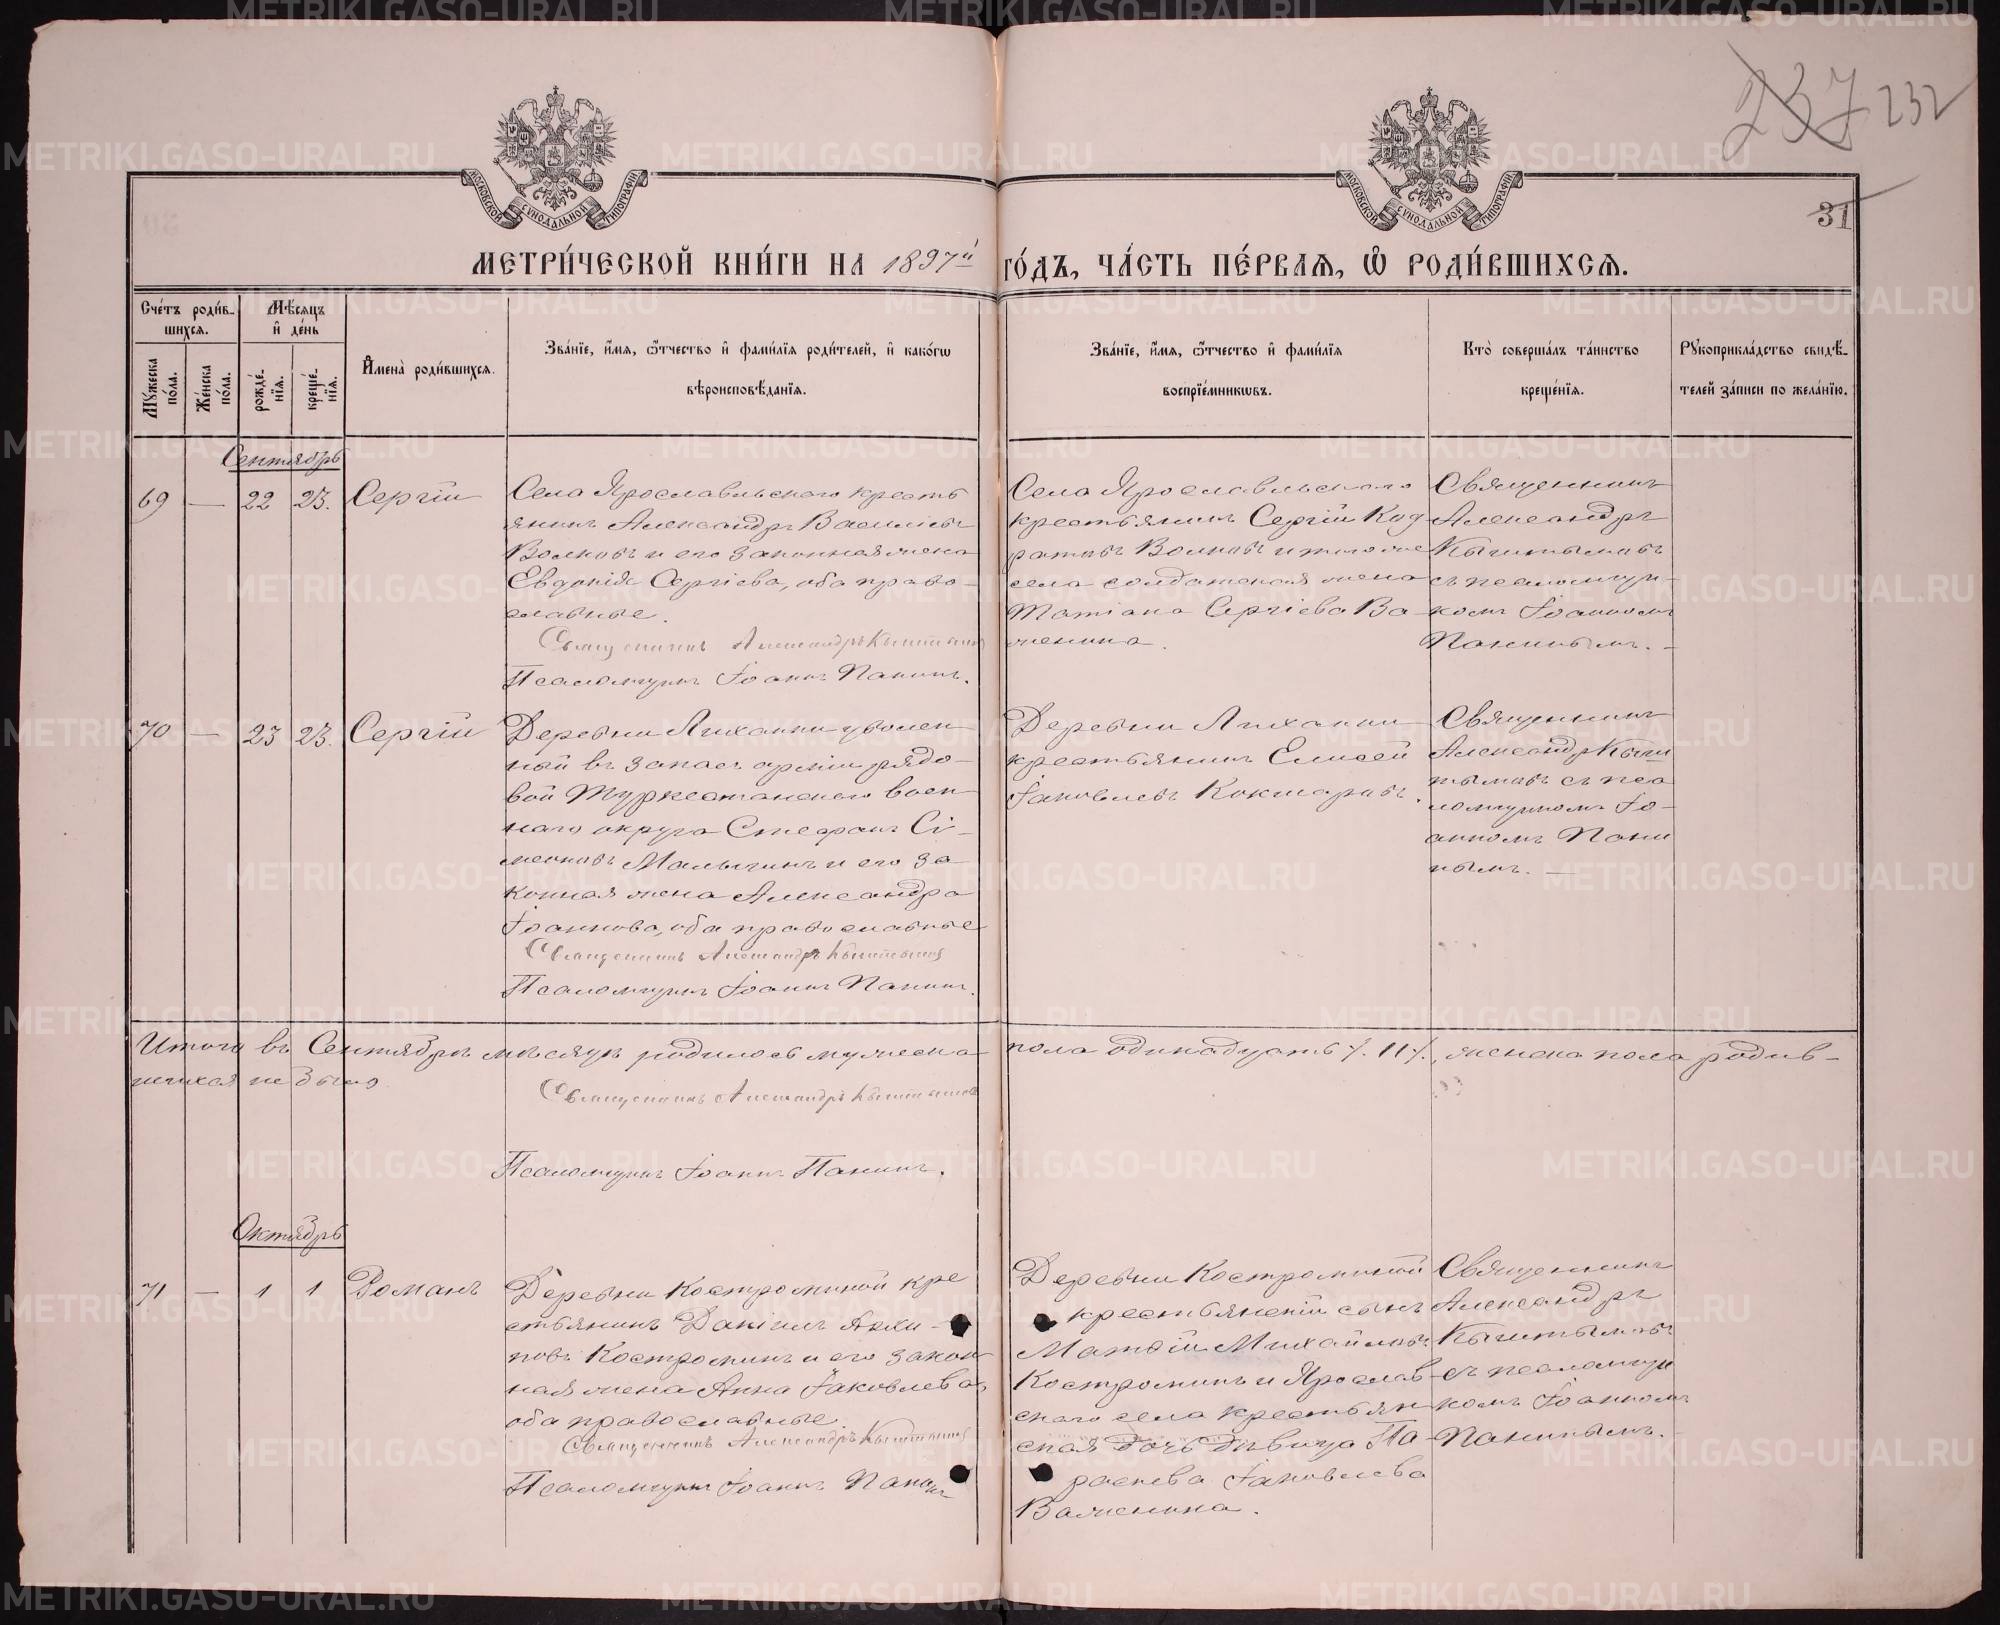 237 232
31
МОСКОВСКОЙ СУНОДАЛЬНОЙ ТИПОГРАФІИ
МОСКОВСКОЙ СУНОДАЛЬНОЙ ТИПОГРАФІИ
МЕТРИ́ЧЕСКОЙ КНИ́ГИ НА 1897й ГО́ДЪ, ЧА́СТЬ ПЕ́РВАѦ, Ѡ РОДИ́ВШИХСѦ.
Сче́тъ роди́в-
шихсѧ.
Мѣ́сѧцъ
и҆ де́нь
Мꙋ́жеска
по́ла.
Же́нска
по́ла.
рожде́-
нїѧ.
креще́-
нїѧ.
И҆мена̀ роди́вшихсѧ.
Зва́нїе, и҆́мѧ, ѻ҆́тчество и҆ фами́лїѧ роди́телей, и҆ како́гѡ
вѣроисповѣ́данїѧ.
Зва́нїе, и҆́мѧ, ѻ҆́тчество и҆ фами́лїѧ
воспрїе́мникѡвъ.
Кто̀ соверша́лъ та́инство
креще́нїѧ.
Рꙋкоприкла́дство свидѣ́-
телей за́писи по жела́нїю.
Сентябрь
69 — 22 23. Сергій
Села Ярославльскаго кресть
янинъ Александръ Васильевъ
Волковъ и его законная жена
Евдокія Сергіева, оба право-
славные.
Священникъ Александръ Кыштымовъ
Псаломщикъ Іоаннъ Панинъ.
Села Ярославльскаго
крестьянинъ Сергій Код
ратовъ Волковъ и того же
села солдатская жена
Татіана Сергіева Ва-
женина.
Священникъ
Александръ
Кыштымовъ
съ псаломщи-
комъ Іоанномъ
Панинымъ. —
70 — 23 23. Сергій
Деревни Лиханки уволен-
ный въ запасъ арміи рядо-
вой Туркестанскаго воен-
наго округа Стефанъ Сі-
меоновъ Малыгинъ и его за-
конная жена Александра
Іоаннова, оба православные
Священникъ Александръ Кыштымовъ
Псаломщикъ Іоаннъ Панинъ.
Деревни Лиханки
крестьянинъ Елисей
Іаковлевъ Кокшаровъ.
Священникъ
Александръ Кыш
тымовъ съ пса
ломщикомъ Іо-
анномъ Пани
нымъ. —
Итого въ Сентябрѣ мѣсяцѣ родилось мужеска пола одинадцать /. 11 /., женска пола родив-
шихся не было.
Священникъ Александръ Кыштымовъ
Псаломщикъ Іоаннъ Панинъ.
Октябрь
71 — 1 1 Романъ
Деревни Костроминой кре
стьянинъ Даніилъ Архи-
повъ Костроминъ и его закон
ная жена Анна Іаковлева,
оба православные.
Священникъ Александръ Кыштымовъ
Псаломщикъ Іоаннъ Панинъ
Деревни Костроминой
крестьянскій сынъ
Матѳій Михайловъ
Костроминъ и Ярослав-
скаго села крестьян
ская дочь дѣвица Па-
раскева Іаковлева
Важенина.
Священникъ
Александръ
Кыштымовъ
съ псаломщи
комъ Іоанномъ
Панинымъ. —